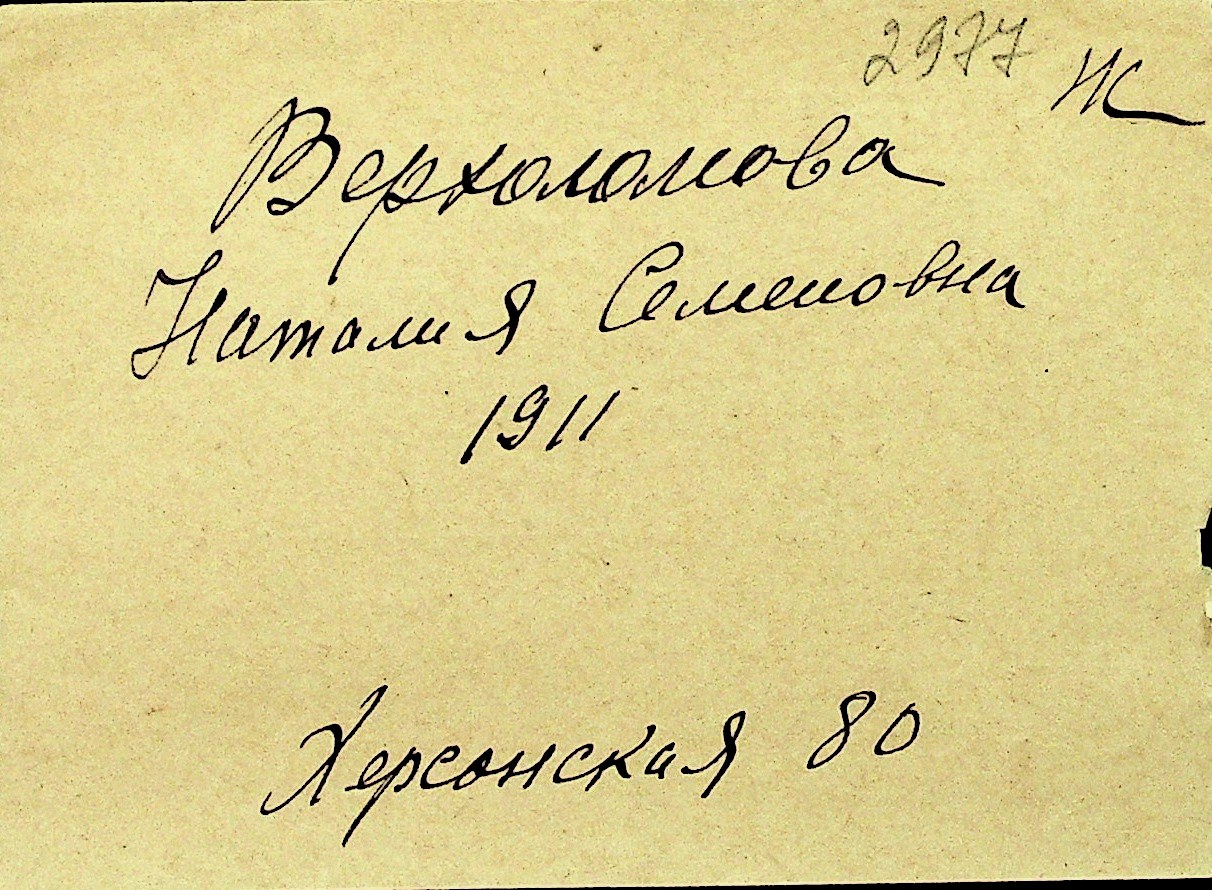 2977 Ж
Верхоломова
Наталия Семеновна
1911
Херсонская 80